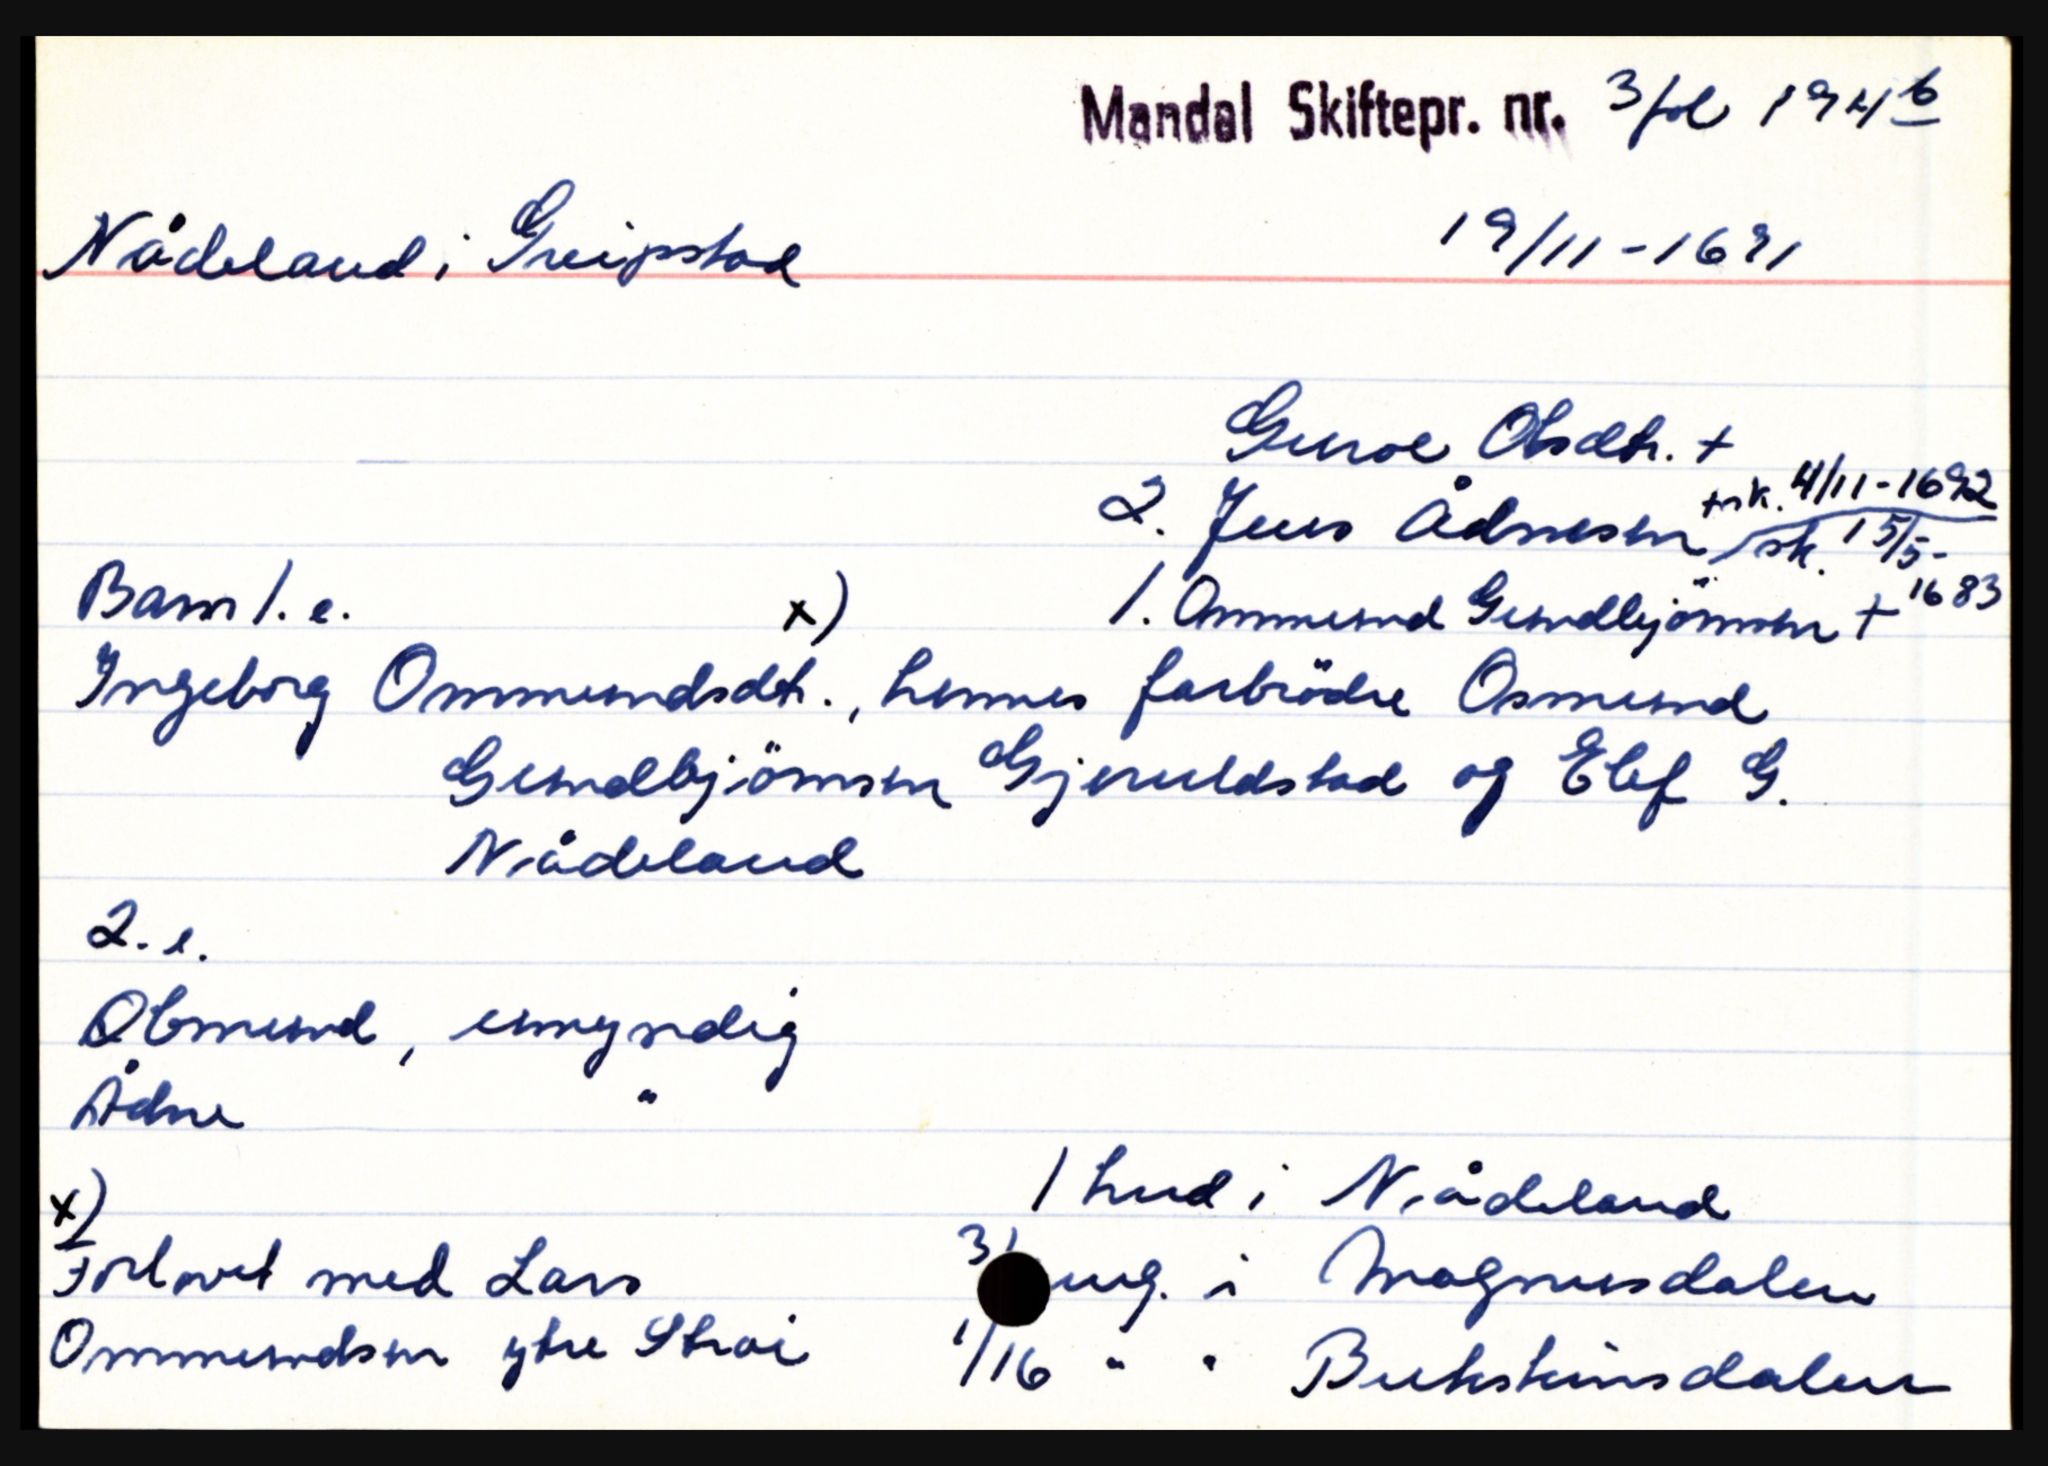 Mandal Skiftepr. nr. 3 fol 194 b
Nådeland i Greipstad
19/11-1691
Guroe Olsdtr. +
2. Jens Ådnesen + sk. 4/11-1692
sk. 15/5-1683
Barn 1. e. x) 1. Ommund Gundbjörnsen +
Ingeborg Ommundsdtr., hennes farbrödre Osmund
Gundbjörnsen Gjeruldstad og Elef G.
Nådeland
2. e.
Obmund, umyndig
Ådne "
x)
Forlovet med Lars
Ommundsen ytre Strai
1 hud i Nådeland
3/ ung. i Magnusdalen
1/16 " " Bukskinsdalen